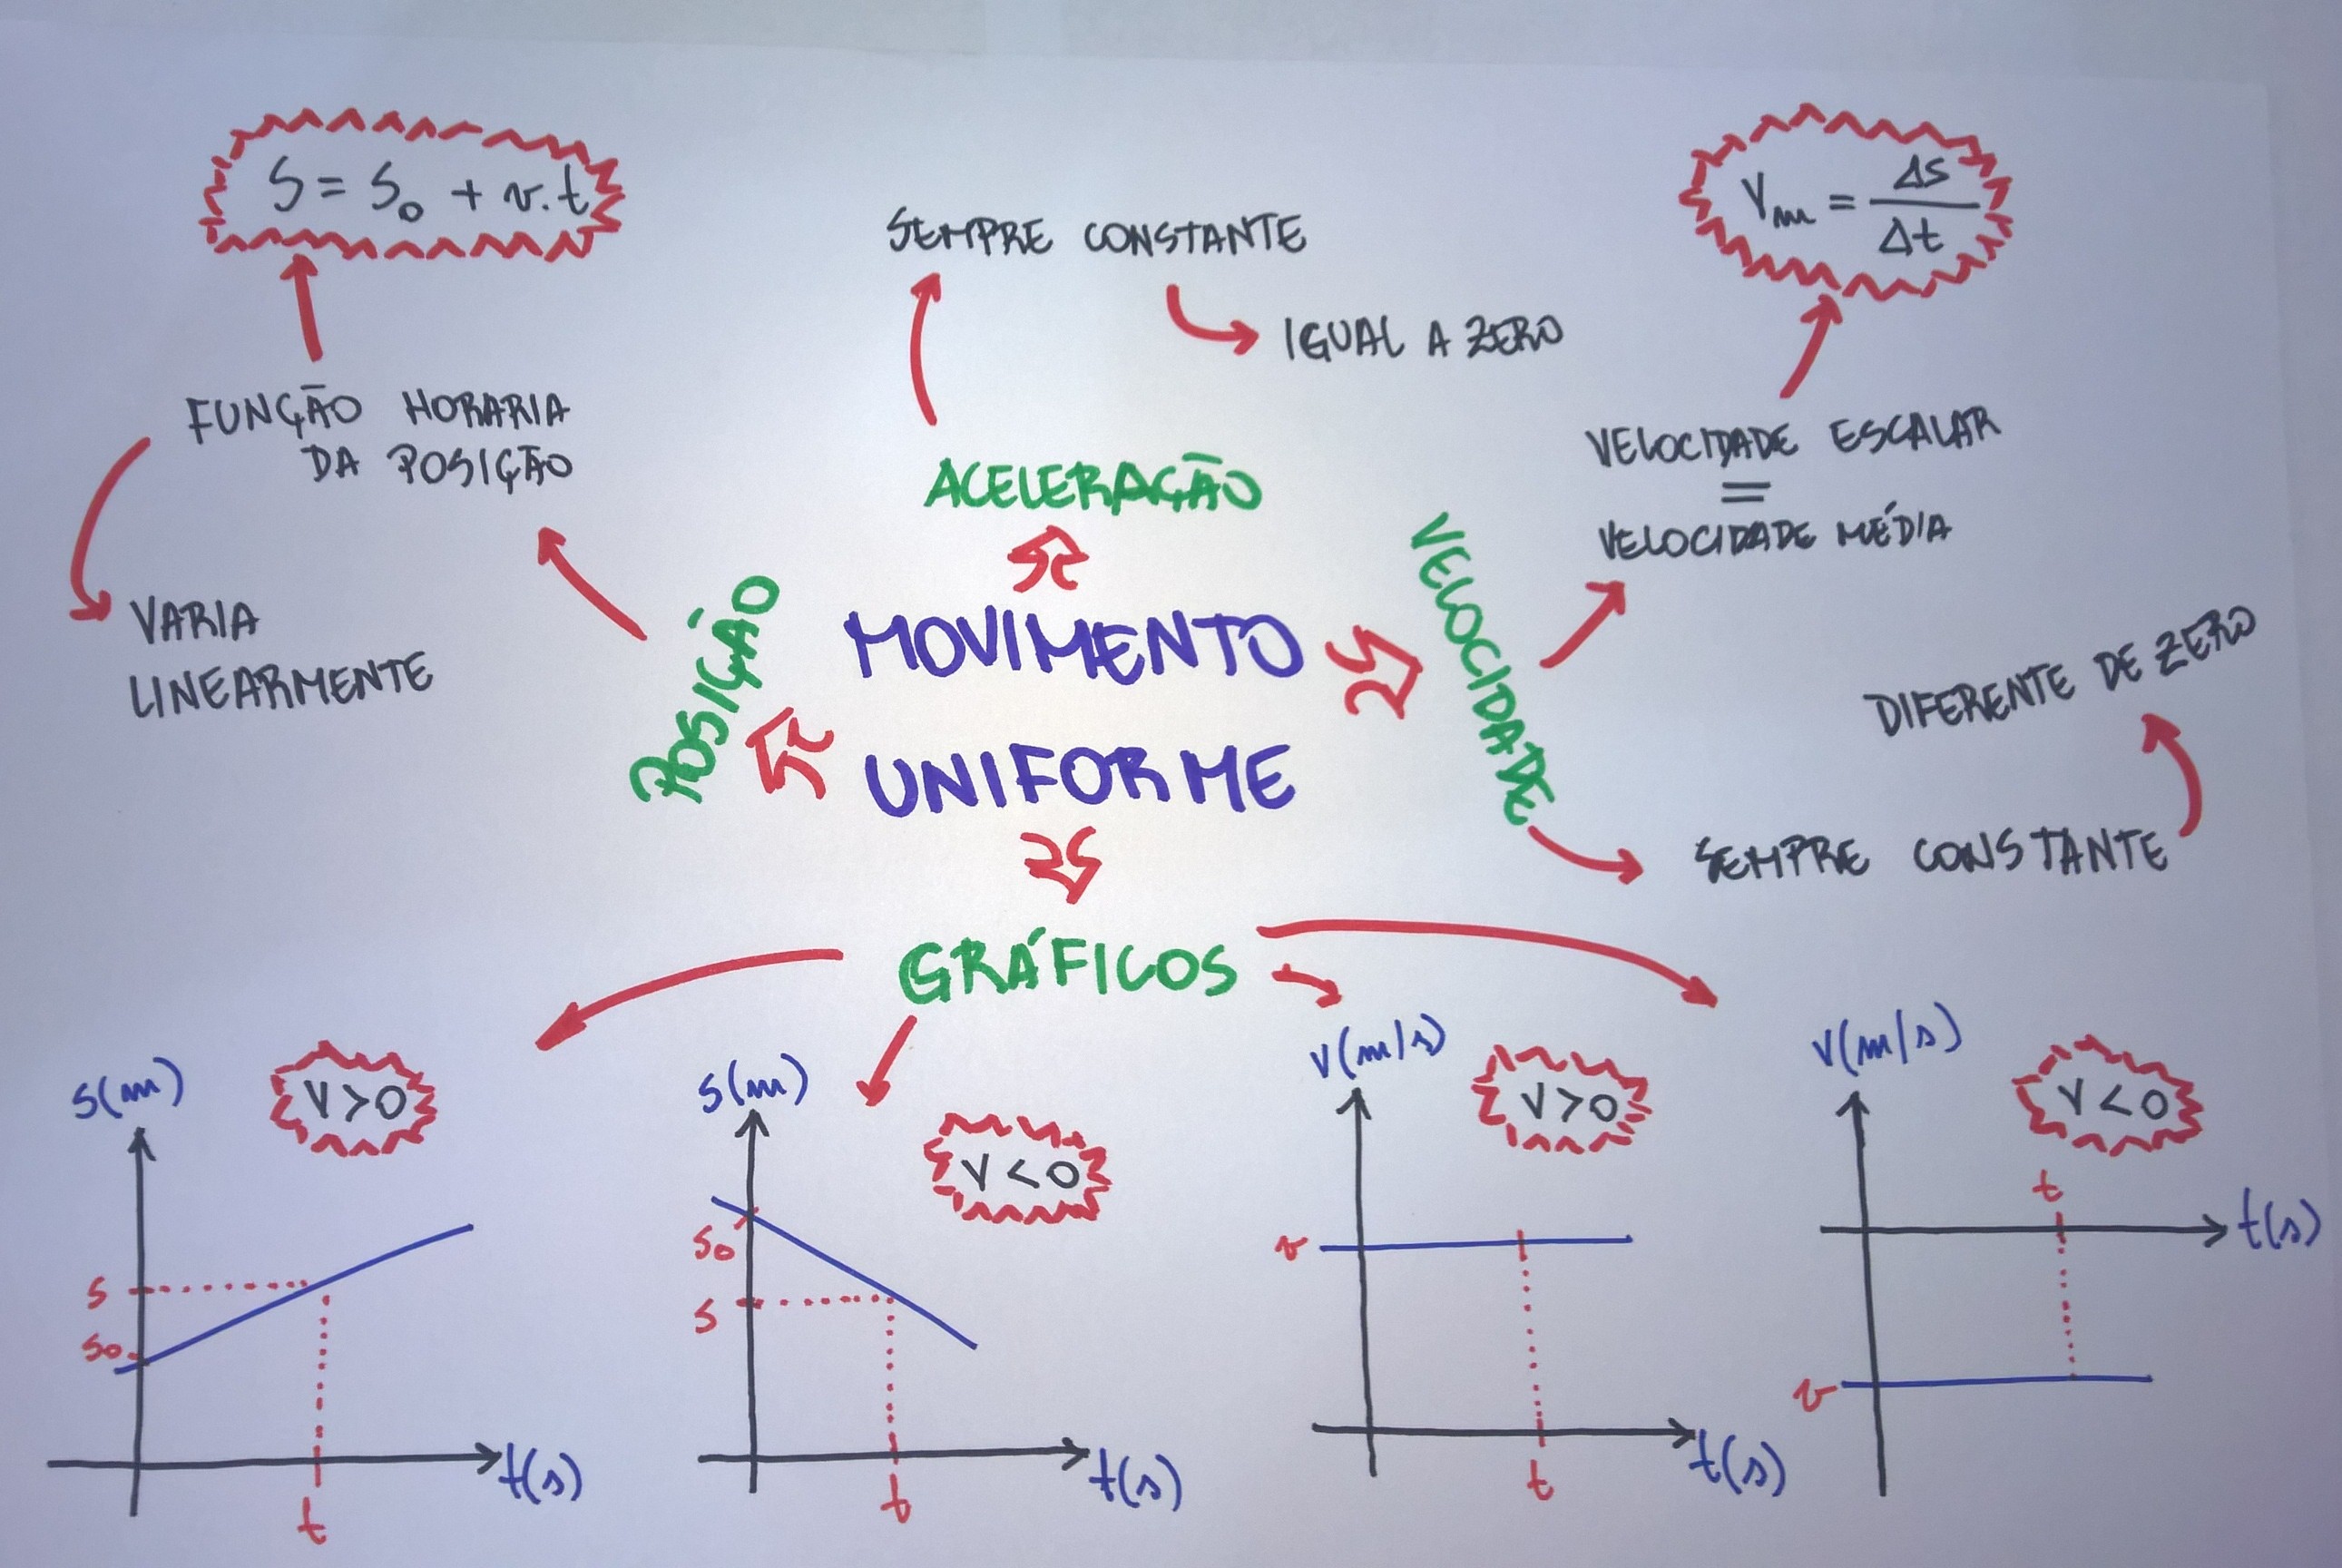 S = S₀ + v.t
SEMPRE CONSTANTE
IGUAL A ZERO
Vm = ΔS/Δt
FUNÇÃO HORARIA
DA POSIÇÃO
VARIA
LINEARMENTE
ACELERAÇÃO
VELOCIDADE ESCALAR
=
VELOCIDADE MÉDIA
POSIÇÃO
MOVIMENTO
UNIFORME
VELOCIDADE
DIFERENTE DE ZERO
SEMPRE CONSTANTE
GRÁFICOS
S(m)
V>0
S
S₀
t
t(s)
S(m)
V<0
S₀
S
t
t(s)
V(m/s)
V>0
v
t
t(s)
V(m/s)
V<0
t
t(s)
v